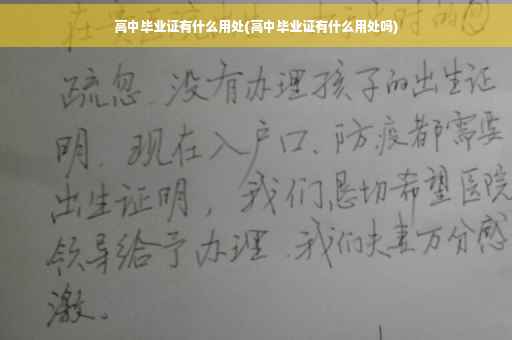 高中毕业证有什么用处(高中毕业证有什么用处吗)
疏忽、没有办理孩子的出生证
明、现在入户口、防疫都需要
出生证明，我们恳切希望医院
领导给予办理、我们夫妻万分感
激。